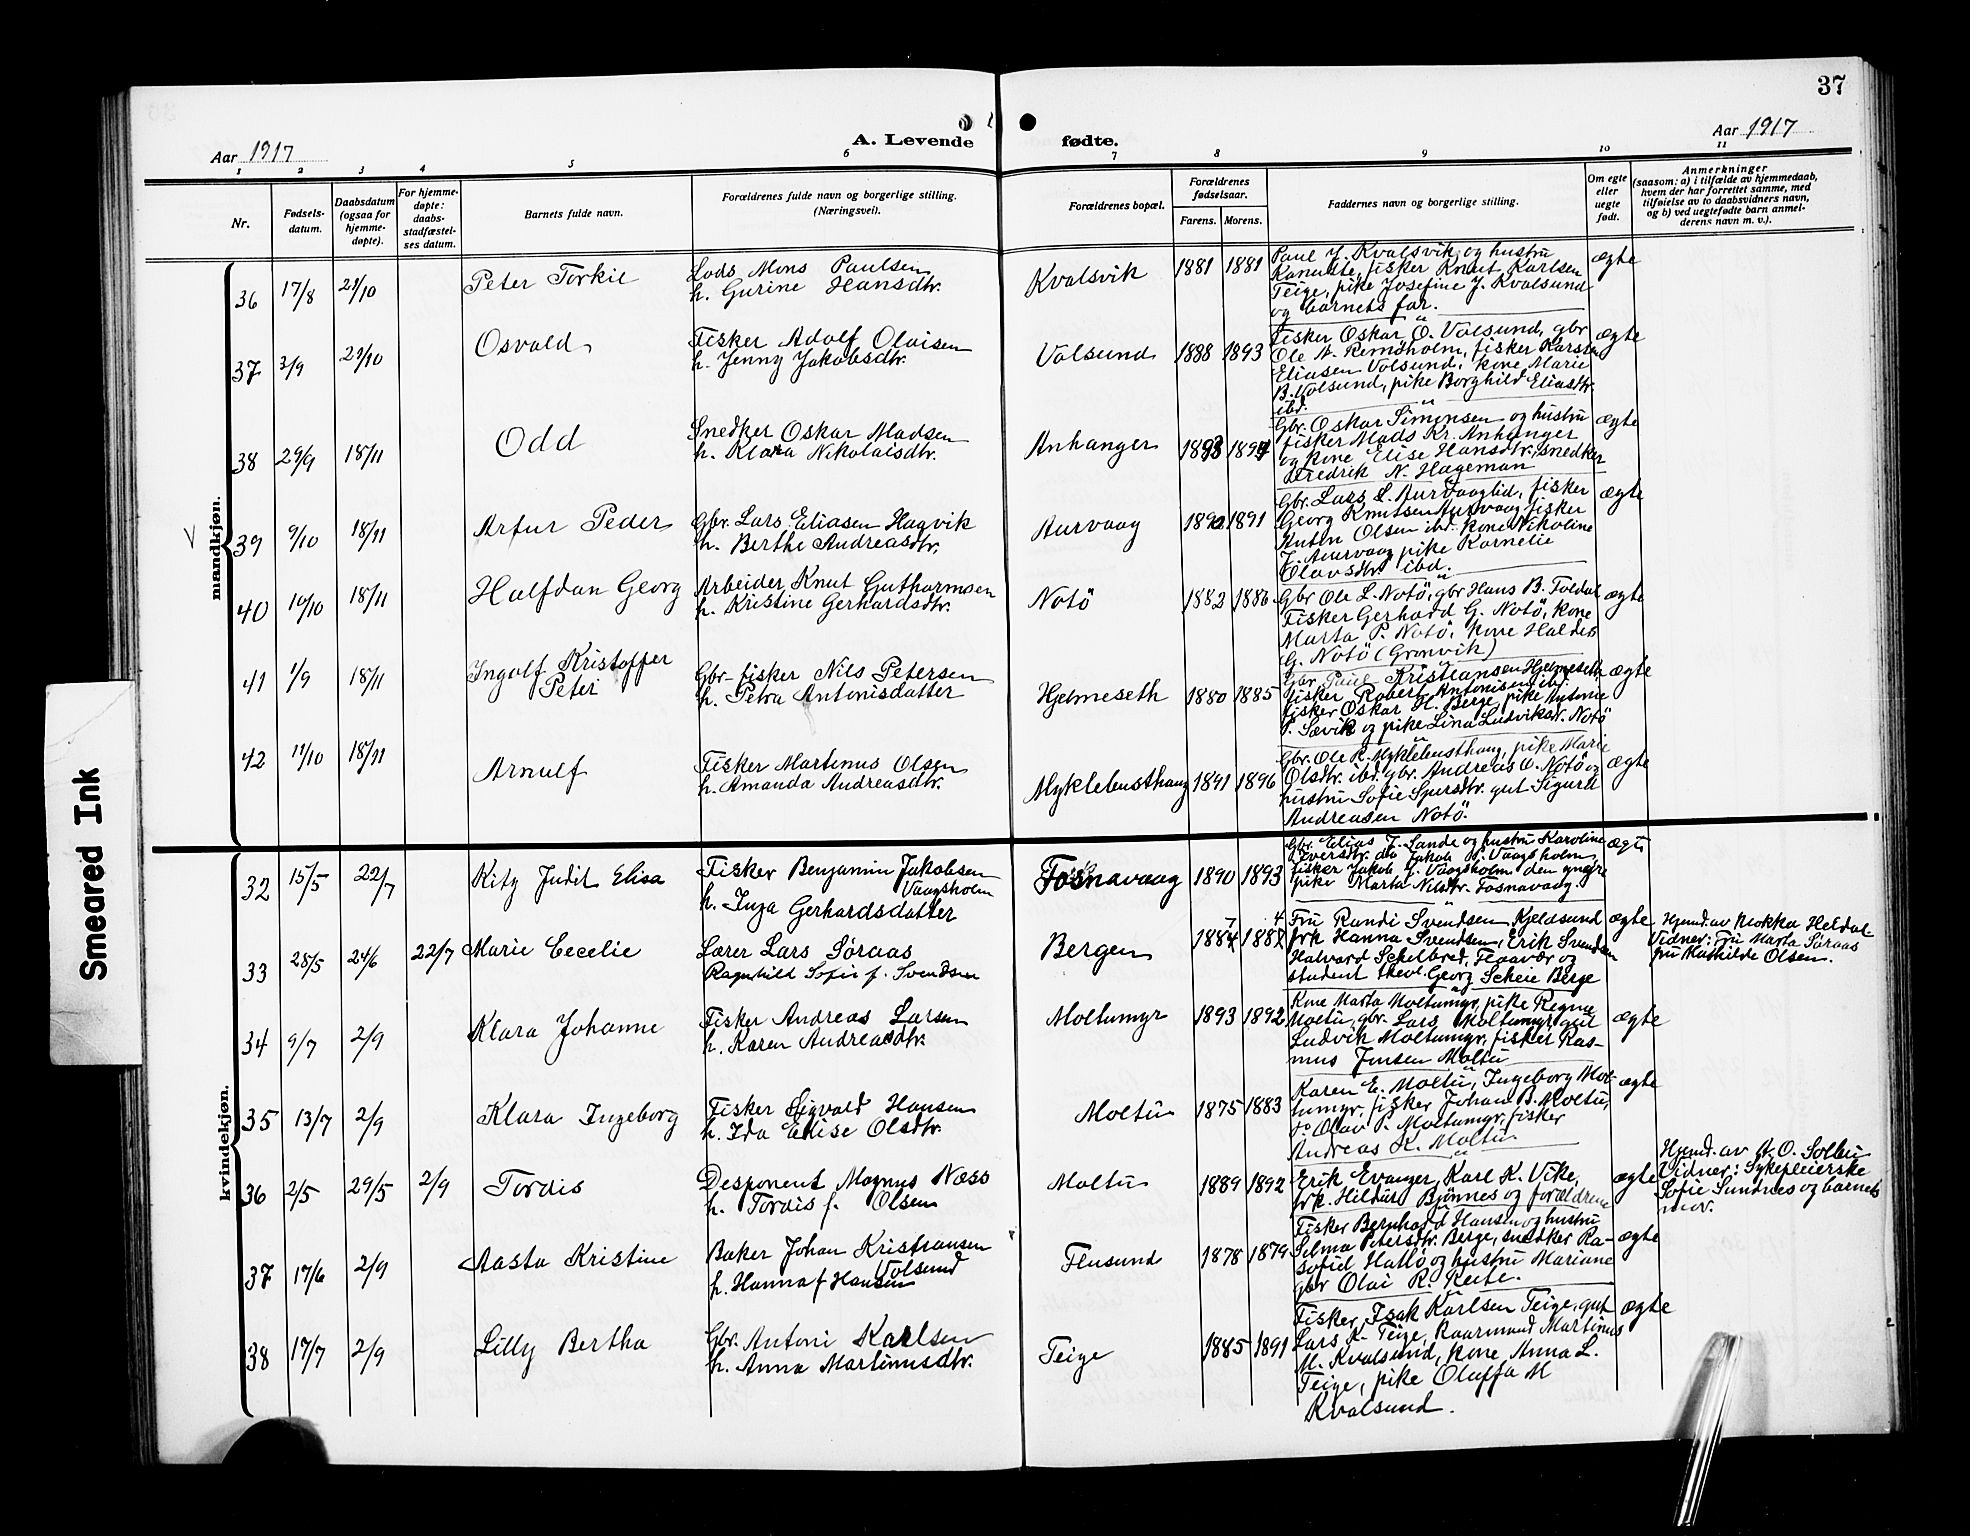 37
Aar 1917
A. Levende fødte.
Aar 1917
1 2 3 4 5 6 7 8 9 10 11
Nr.
Fødsels-
datum.
Daabsdatum
(ogsaa for
hjemme-
døpte).
For hjemme-
døpte:
daabs-
stadfæstel-
ses datum.
Barnets fulde navn.
Forældrenes fulde navn og borgerlige stilling.
(Næringsvei).
Forældrenes bopæl.
Forældrenes
fødselsaar.
Farens. Morens.
Faddernes navn og borgerlige stilling.
Om egte
eller
uegte
født.
Anmerkninger
(saasom: a) i tilfælde av hjemmedaab,
hvem der har forrettet samme, med
tilføielse av to daabsvidners navn,
og b) ved uegtefødte barn anmel-
derens navn m. v.).
mandkjøn.
36 17/8 21/10 Peter Torkil
Lods Mons Paulsen
h. Gurine Hansdtr.
Kvalsvik 1881 1881
Paul J. Kvalsvik og hustru
Kanutte, fisker Knut Karlsen
Teige, pike Josefine J. Kvalsund
og barnets far.
ægte
37 3/9 21/10 Osvald
Fisker Adolf Olaisen
h. Jenny Jakobsdtr.
Volsund 1888 1893
Fisker Oskar O. Volsund, gbr
Ole A. Remöholm, fisker Karsten
Eliasen Volsund, kone Marie
B. Volsund, pike Borghild Eliasdtr.
ibd.
ægte
38 29/9 18/11 Odd
Snedker Oskar Madsen
h. Klara Nikolaisdtr.
Anhanger 1893 1894
Gbr. Oskar Simonsen og hustru
fisker Mads Kr. Anhanger
og kone Elise Hansdtr., snedker
Fredrik N. Hageman
ægte
39 9/10 18/11 Artur Peder
Gbr. Lars Eliasen Hagvik
h. Berthe Andreasdtr.
Aurvaag 1890 1891
Gbr. Lars L. Aurvaaglid, fisker
Georg Knutsen Aurvaag fisker
Anton Olsen ibd. kone Nikoline
J. Aurvaag pike Kornelie
Olavsdtr. ibd.
ægte
40 10/10 18/11 Halfdan Georg
Arbeider Knut Guthormsen
h. Kristine Gerhardsdtr.
Notö 1882 1886
Gbr Ole L. Notö, gbr Hans B. Foldal
Fisker Gerhard G. Notö, kone
Marta P. Notö, kone Haldis
G. Notö (Grönvik)
ægte
41 1/9 18/11 Ingolf Kristoffer
Peter
Gbr-fisker Nils Petersen
h. Petra Antonisdatter
Hjelmeseth 1880 1885
Gbr. Paul Kristiansen Hjelmeseth
fisker Robert Antonisen ibd.
fisker Oskar H. Berge pike Antonie
P. Sævik og pike Lina Ludviksdr. Notö
ægte
42 11/10 18/11 Arnulf
Fisker Martinus Olsen
h. Amanda Andreasdtr.
Myklebusthaug 1891 1896
Gbr. Ole R. Myklebusthaug, pike Marie
Olsdtr. ibd. gbr. Andreas O. Notö og
hustru Sofie Spersdtr. gut Sigurd
Andreasen Notö.
ægte
kvindekjøn.
32 15/5 22/7 Kity Judit Elisa
Fisker Benjamin Jakobsen
Vaagsholm
h. Inga Gerhardsdatter
Fosnavaag 1890 1893
Gbr. Elias J. Sande og hustru Karoline
Iversdtr. do Jakob J. Vaagsholm
fisker Jakob J. Vaagsholm den yngre
pike Marta Nilsdtr. Fosnavaag.
ægte
33 28/5 24/6 22/7 Marie Cecelie
Lærer Lars Søraas
Ragnhild Sofie f. Svendsen
Bergen 1884 7 1887 4
Fru Randi Svendsen Kjeldsund
frk Hanna Svendsen, Erik Svendsen
Halvard Schelbred, Flaavær og
student theol. Georg Scheie Berge
ægte
Hjemd. av Mokka Heldal
Vidner: Fru Marta Søraas
fru Mathilde Olsen.
34 9/7 2/9 Klara Johanne
Fisker Andreas Larsen
h. Karen Andreasdtr.
Moltumyr 1893 1892
Kone Marta Moltumyr, pike Regine
Moltu, gbr. Lars Moltumyr gut
Ludvik Moltumyr, fisker Ras-
mus Jensen Moltu
ægte
35 13/7 2/9 Klara Ingeborg
Fisker Sigvald Hansen
h. Ida Elise Olsdtr.
Moltu 1875 1883
Karen E. Moltu, Ingeborg Mol-
tumyr, fisker Johan B. Moltu,
do Olav P. Moltumyr, fisker
Andreas K. Moltu
ægte
36 2/5 29/5 2/9 Tordis
Desponent Magnus Næss
h. Tordis f. Olsen
Moltu 1889 1892
Erik Evanger, Karl K. Vike,
frk. Hildur Bjönnes og forældrene
ægte
Hjemd. av A. O. Solbu
Vidner: Sykepleierske
Sofie Sundnes og barnets
mor.
37 17/6 2/9 Aasta Kristine
Baker Johan Kristiansen
Volsund
h. Hanna f Hansen
Flusund 1878 1879
Fisker Bernhard Hansen og hustru
Selma Petersdtr. Berge, snedker Ra-
sofiel Hatlö og hustru Mariane
gbr Olai R. Reite.
ægte
38 17/7 2/9 Lilly Bertha
Gbr. Antoni Karlsen
h. Anna Martinusdtr.
Teige 1885 1891
Fisker Isak Karlsen Teige, gut
Lars K. Teige, Kaarmand Martinus
M. Kvalsund, kone Anna L.
Teige, pike Oluffa M
Kvalsund.
ægte
Smeared Ink